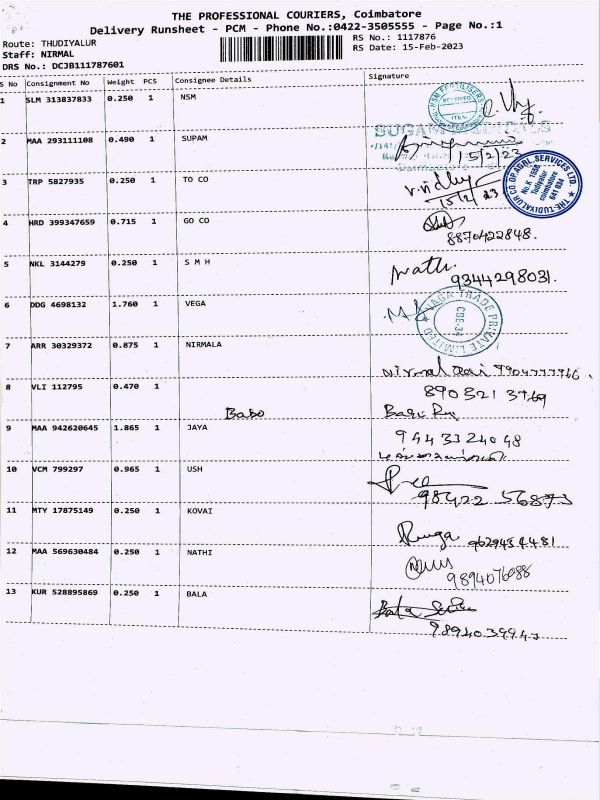 THE PROFESSIONAL COURIERS, Coimbatore
Delivery Runsheet - PCM - Phone No.:0422-3505555 - Page No.:1
Route: THUDIYALUR RS No.: 1117876
Staff: NIRMAL RS Date: 15-Feb-2023
DRS No.: DCJB111787601
S No Consignment No Weight PCS Consignee Details Signature
1 SLM 313837833 0.250 1 NSM
NSM FERTILISERS RECEIVED
2 MAA 293111108 0.490 1 SUPAM
15/2/23
3 TRP 5827935 0.250 1 TO CO
15/2/23
THE TUDIYALUR CO.OP.AGRL.SERVICES LTD.
No.K 1559,
Tudiyalur
coimbatore
641 034
4 HRD 399347659 0.715 1 GO CO
8870422848.
5 NKL 3144279 0.250 1 S M H
9344298031.
6 DDG 4698132 1.760 1 VEGA
TRADE PRIVATE LIMITED
CBE-34
7 ARR 30329372 0.875 1 NIRMALA
8 VLI 112795 0.470 1
Babo
9 MAA 942620645 1.865 1 JAYA
9443324048
10 VCM 799297 0.965 1 USH
98422 56873
11 MTY 17875149 0.250 1 KOVAI
12 MAA 569630484 0.250 1 NATHI
9894076088
13 KUR 528895869 0.250 1 BALA